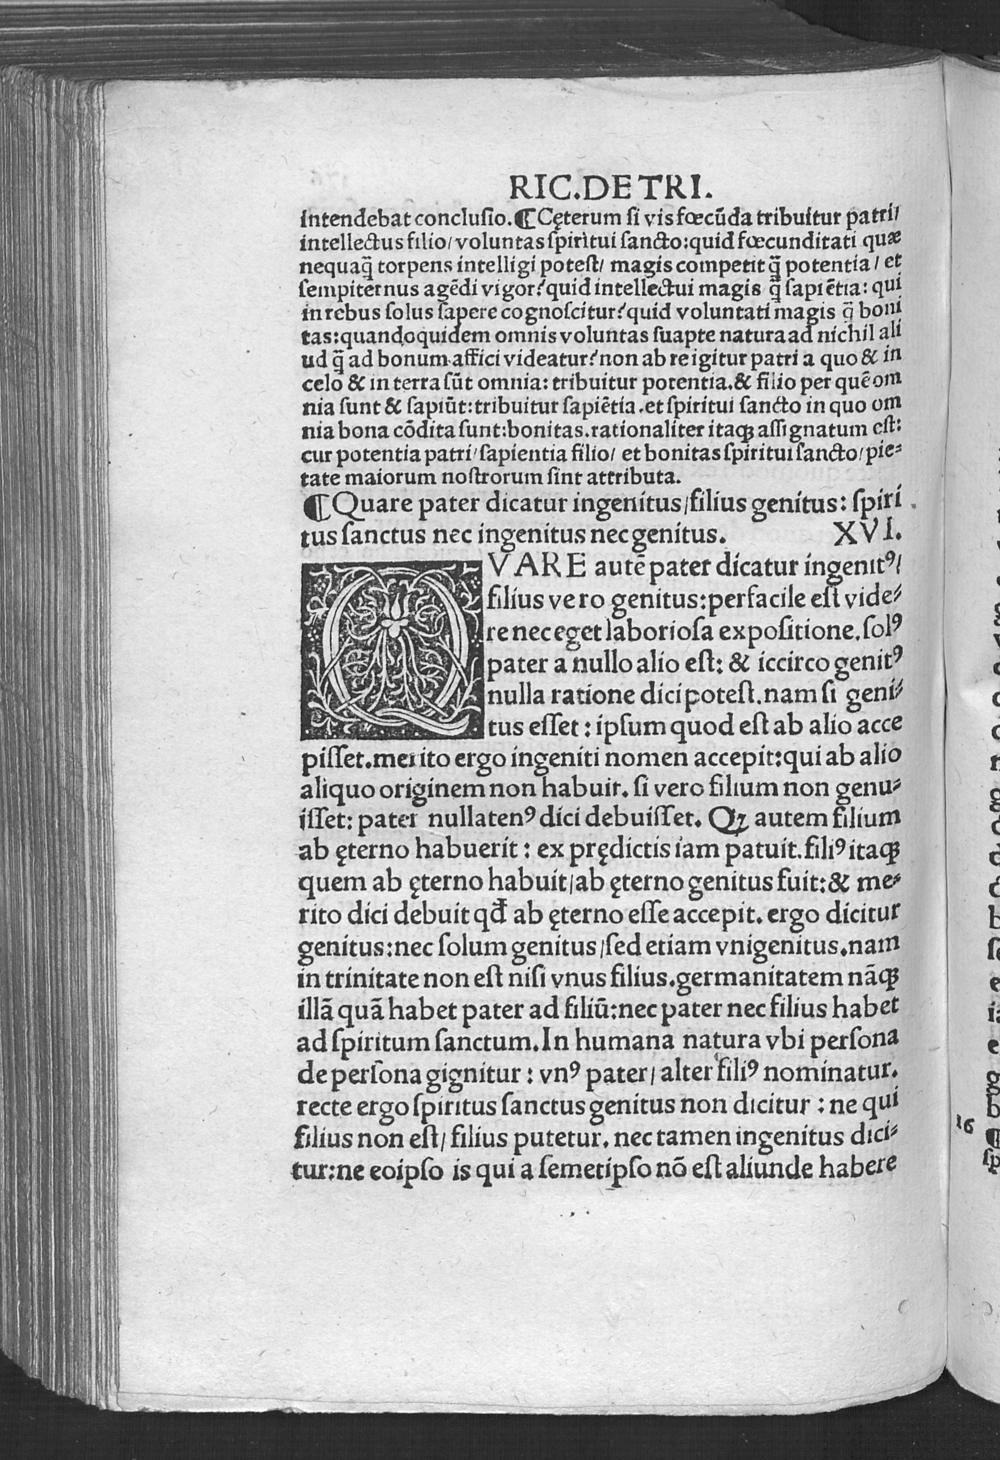 RIC.DE TRI.
intendebat conclusio.¶Cęterum si vis fœcũda tribuitur patri/
intellectus filio/voluntas spiritui sancto:quid fœcunditati quæ
nequaq̃ torpens intelligi potest/ magis competit q̃ potentia/ et
sempiternus agẽdi vigor?quid intellectui magis q̃ sapiẽtia: qui
in rebus solus sapere cognoscitur?quid voluntati magis q̃ boni
tas:quandoquidem omnis voluntas suapte natura ad nichil ali
ud q̃ ad bonum affici videatur?non ab re igitur patri a quo & in
celo & in terra sũt omnia: tribuitur potentia.& filio per quẽ om
nia sunt & sapiũt:tribuitur sapiẽtia.et spiritui sancto in quo om
nia bona cõdita sunt:bonitas.rationaliter itaqꝫ assignatum est:
cur potentia patri/sapientia filio/ et bonitas spiritui sancto/pie⸗
tate maiorum nostrorum sint attributa.
¶Quare pater dicatur ingenitus/filius genitus: spiri
tus sanctus nec ingenitus nec genitus. XVI.
QVARE autẽ pater dicatur ingenitꝰ/
filius vero genitus:perfacile est vide⸗
re nec eget laboriosa expositione.solꝰ
pater a nullo alio est: & iccirco genitꝰ
nulla ratione dici potest.nam si geni⸗
tus esset : ipsum quod est ab alio acce
pisset.merito ergo ingeniti nomen accepit:qui ab alio
aliquo originem non habuit. si vero filium non genu⸗
isset: pater nullatenꝰ dici debuisset. Qꝫ autem filium
ab ęterno habuerit : ex prędictis iam patuit.filiꝰ itaqꝫ
quem ab ęterno habuit/ab ęterno genitus fuit:& me⸗
rito dici debuit qđ ab ęterno esse accepit. ergo dicitur
genitus:nec solum genitus/sed etiam vnigenitus.nam
in trinitate non est nisi vnus filius.germanitatem nãqꝫ
illã quã habet pater ad filiũ:nec pater nec filius habet
ad spiritum sanctum.In humana natura vbi persona
de persona gignitur : vnꝰ pater/ alter filiꝰ nominatur.
recte ergo spiritus sanctus genitus non dicitur : ne qui
filius non est/ filius putetur. nec tamen ingenitus dici⸗
tur:ne eoipso is qui a semetipso nõ est aliunde habere
16